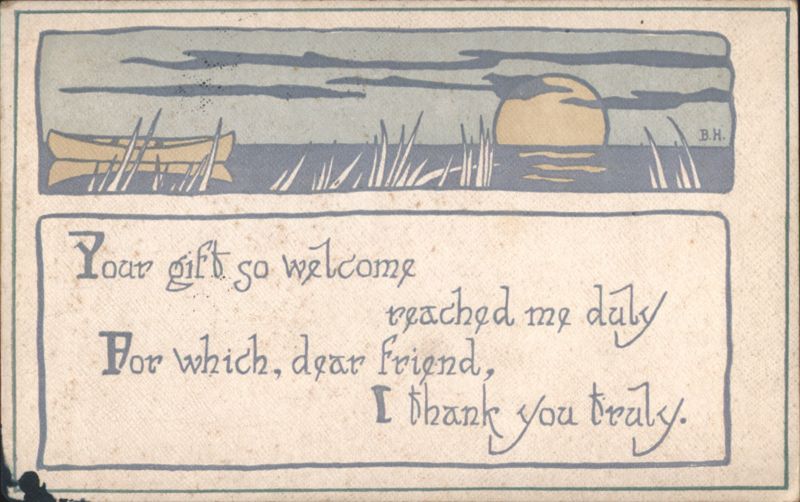 B.H.
Your gift so welcome
reached me duly
For which, dear friend,
I thank you truly.